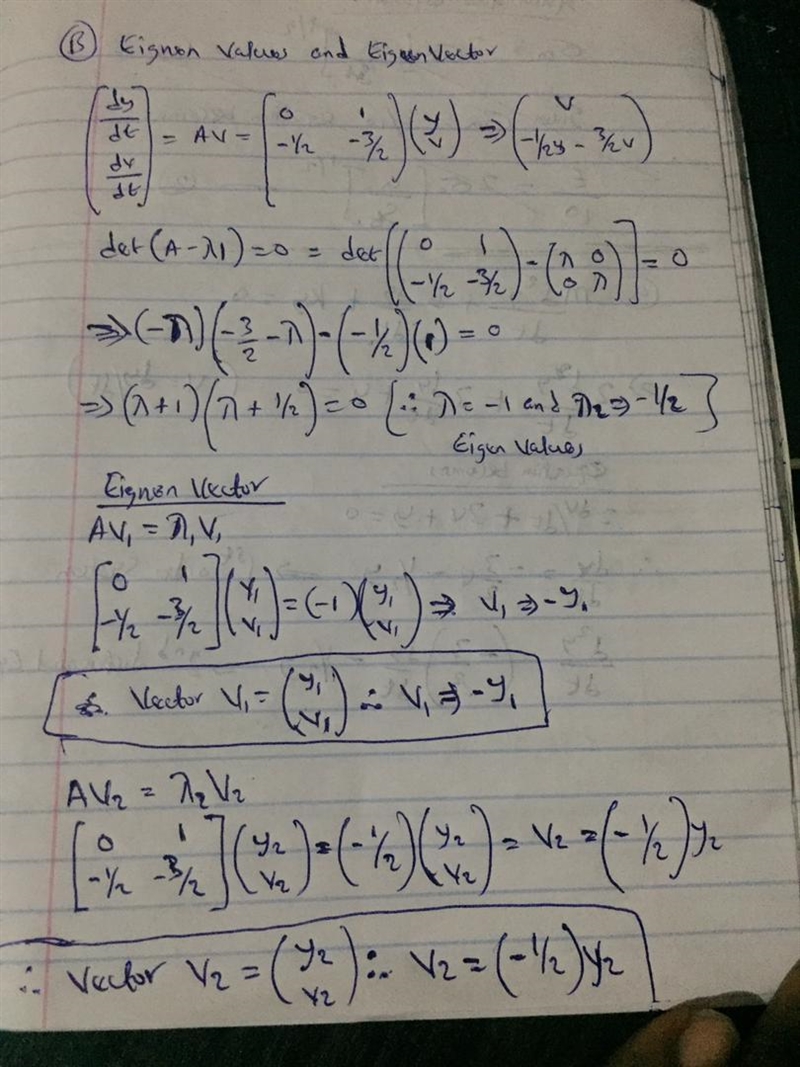 (B) Eignen Values and EigenVector
(dy/dt dv/dt) = AV = [0 1 -1/2 -3/2] (y v) ⇒ (v -1/2y - 3/2v)
det(A-λ1)=0 = det[(0 1 -1/2 -3/2) - (λ 0 0 λ)] = 0
⇒ (-λ)(-3/2 - λ) - (-1/2)(1) = 0
⇒ (λ+1)(λ+1/2)=0 [∴ λ = -1 and λ2 ⇒ -1/2]
Eigen Values
Eignen Vector
AV1 = λ1V1
[0 1 -1/2 -3/2] (y1 v1) = (-1)(y1 v1) ⇒ V1 ⇒ -y1
∴ Vector V1 = (y1 v1) ∴ V1 ⇒ -y1
AV2 = λ2V2
[0 1 -1/2 -3/2] (y2 v2) = (-1/2)(y2 v2) = V2 = (-1/2)y2
∴ Vector V2 = (y2 v2) ∴ V2 = (-1/2)y2